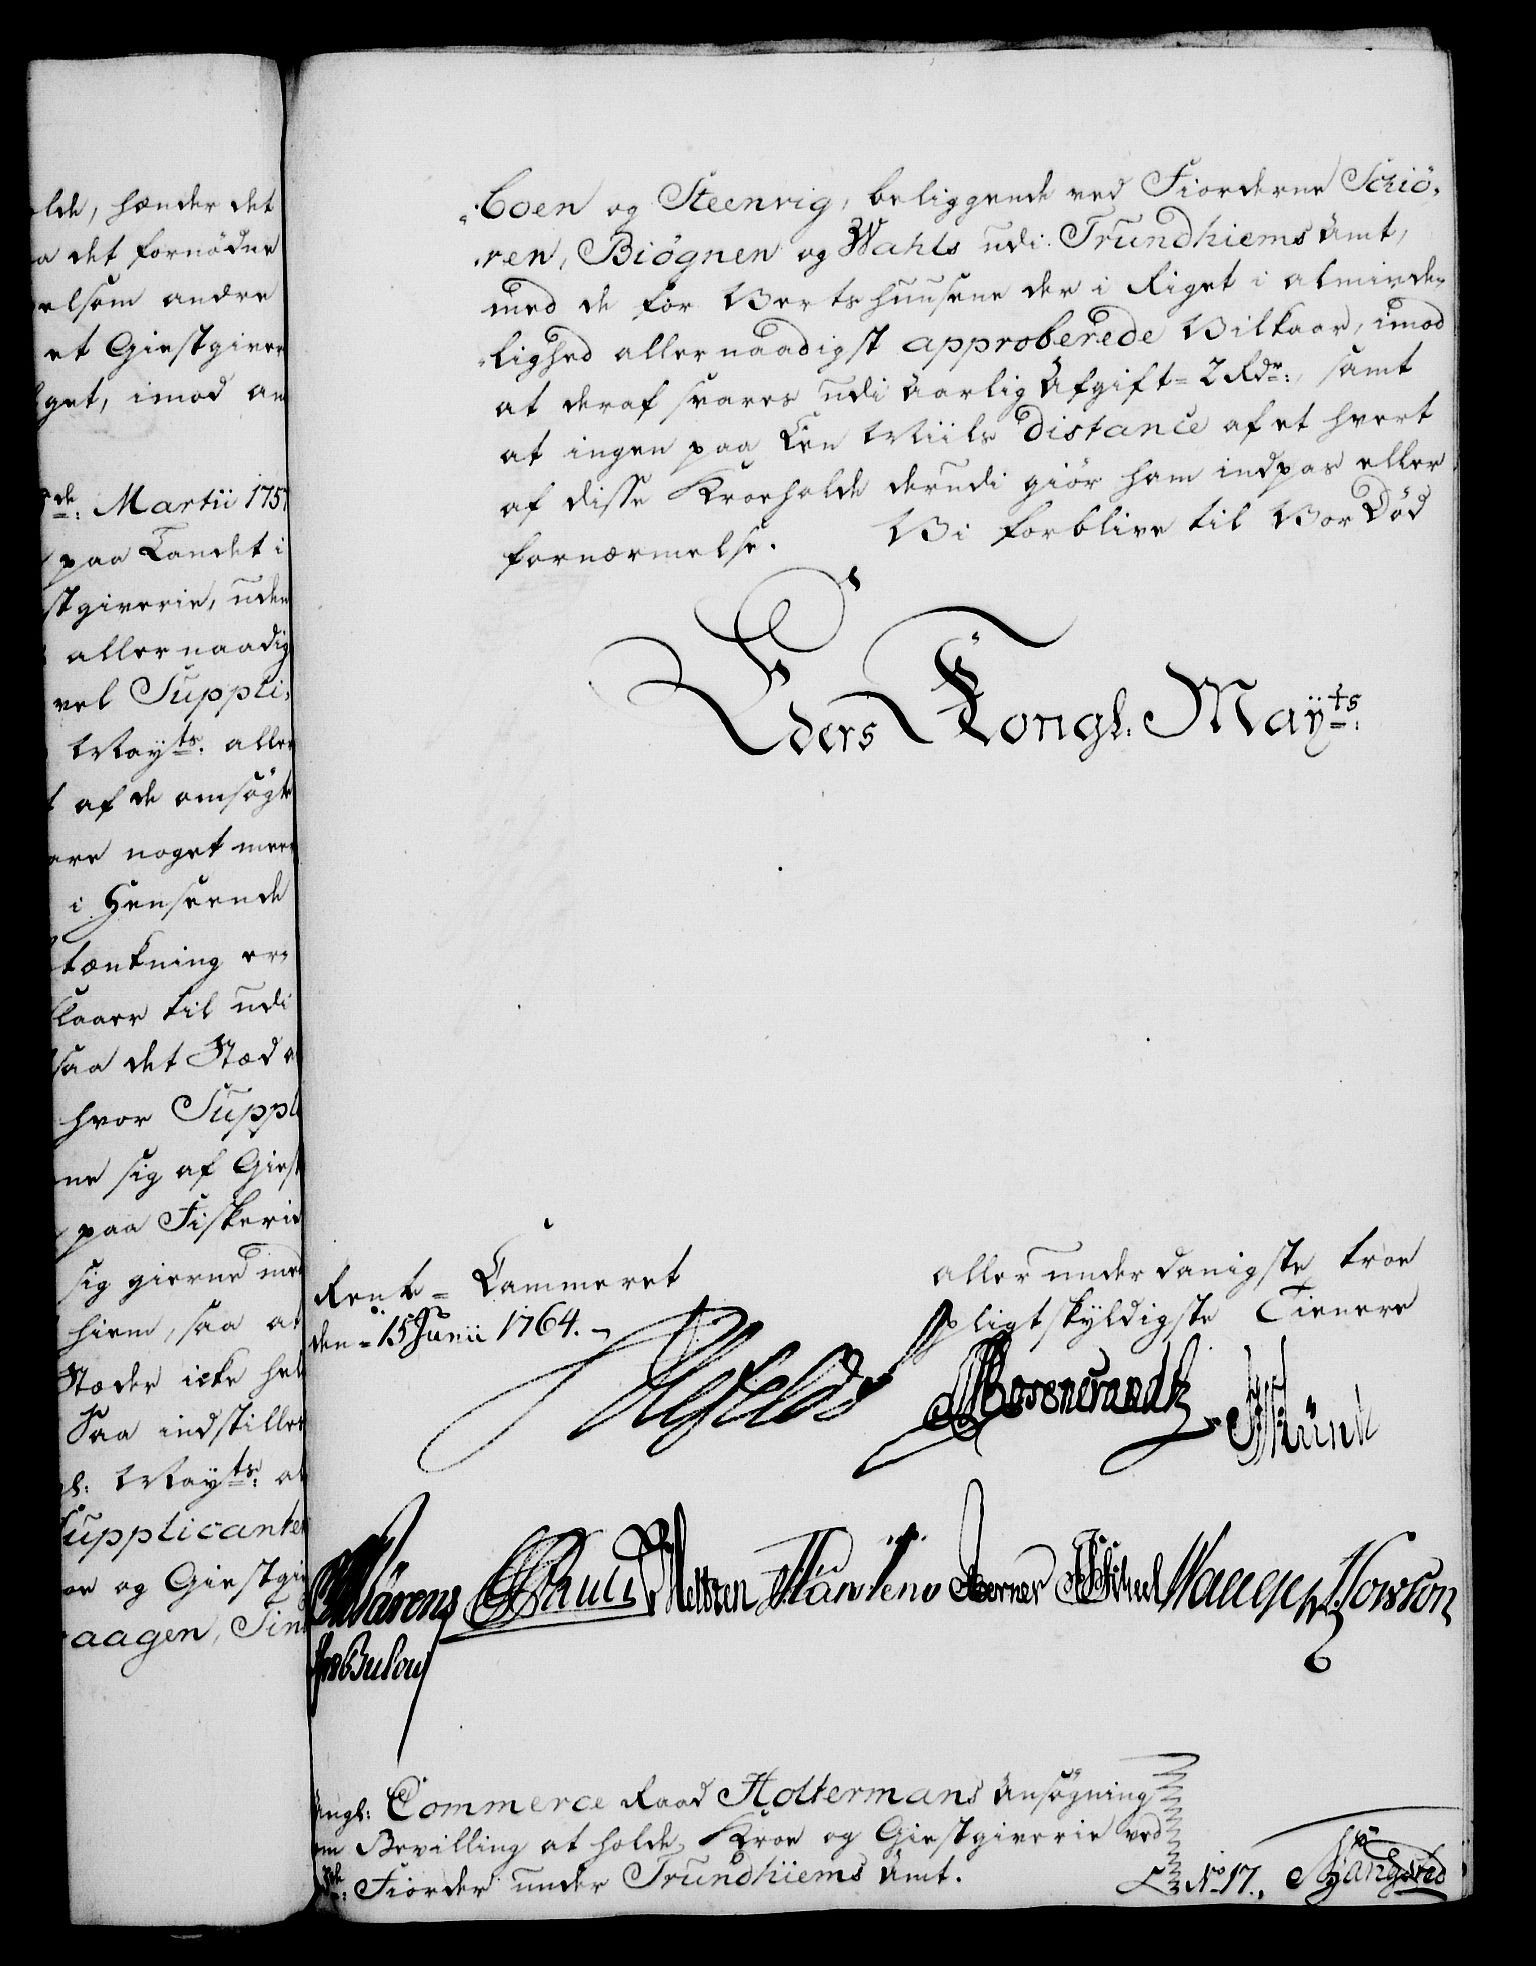 lde, hænder det
a det fornødne
elsom andre
et Giestgiver
get, imod an
de: Martii 175
paa Landet i
stgiverie, uden
allernaadig
vel Suppli,
Mayts: aller
af de omsøgte
are noget meer
i Henseende
tænkning er,
laar til udi
saa det Stæd
hvor Suppl
ne sig af Giest
paa Fiskerie
sig gierne med
hiem, saa at
Stæder icke hel
Saa indstilles
gl: Mayts: at
Supplicanten
oe og Giestgi
aagen, Tin
boen og Steenvig, beliggende ved Fiorderne Schiö,
ren, Biögnen og Wahls udi Trundhiems Amt,
med de for Vertshuusene der i Riget i alminde,
lighed allernaadigst approberede Vilkaar, imod
at deraf svares udi aarlig Afgift = 2 Rdr:, samt
at ingen paa Een Miils distance af et hvert
af disse Kroeholde derudi giör ham indpas eller
fornærmelse. Vi forblive til Vor Död
Eders Kongl. Mayts:
Rente = Cammeret
den = 15 Junii 1764.
allerunderdanigste troe
pligtskyldigste Tienere
Ahlefeldt Rosencrandtz
Wärens Martens Berner
Bulow
Angl: Commerce Raad Holtermans Ansögning
om Bevilling at holde Kroe og Giestgiverie ved
Fiorder under Trundhiems Amt.
No 17.